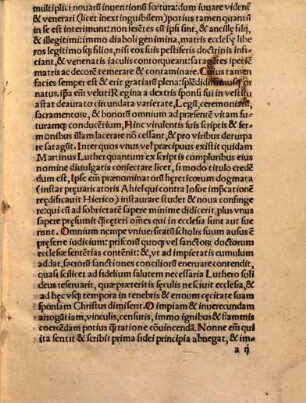 multiplici nouarū inuentionū fortūra: dum iuuare vidēnt̃
& venerari (licet inextinguibilem) potius tamen quantū in
est ea interimere: non seruẽt em ipsi sint, & ancille filij,
& illegitimi: immo diaboli genimina, matrix ecclesię libe
ros legitimosq̃ filios, nisi eos suis pestiferis doctrinis infi
ciant, & venenatis iaculis contorqueant: satagẽtes ipsiꝰ
matris ac decorẽ temerare & contaminare. Cuius tamen
facies semper est & erit gratiarū plena: splẽdidissimus or
natus, ipa em̃ veluti Regina a dextris sponsi sui in vestitu
astat deaurato circundata varietate, Legū, ceremoniarū,
sacramentorꝫ, & bonorū omnium ad pręsentẽ vitam fu
turamq̃ conductium. Hinc virulentis suis scriptis & ser
monibus illam lacerare nō cessant, & pro viribus deturpa
re satagūt. Interquos vnus vel pręcipuus existit quidam
Martinus Luther quantum ex scriptis compluribus eius
nomine diuulgatis coniectare licet, si modo titulo credē
dum est, Ipse em pręmanimatorū hęreticorum dogmata
(instar pręuaricatoris Ahiel qui contra Iosue impręcationē
ręedificauit Hierico) instaurare studet & noua confinge
re: quid ad sobrietatẽ sapere minime didicerit, plus vnus
sapere pręsumit q̃ceteri oẽs qui in ecclesia sunt aut fue
rint. Omnium nempe vniuersitatū scholis suum ausus est
preferre iudicium: priscorū quoq̃ vel sanctorꝫ doctorum
ecclesiae sentẽtias contẽnit: &, vt ad impietatis cumulum
ad dat, sacrorū sanctiones conciliorū eneruare contendit,
quasi scilicet ad fidelium salutem necessaria Luthero soli
deus reseruarit, quę pręteritis sęculis nesciuit ecclesia, &
ad hęc vsq̃ tempora in tenebris & errorum cęcitate suam
sponsam Christus dimiserit. O impiam & inuerecundam
arrogātiam, vinculis, censuris, immo ignibus & flammis
coercẽdam potius q̃ ratione cōuincendã. Nonne em̃ qui
ita sentit & scribit prima fidei principia abnegat, & im
a ij